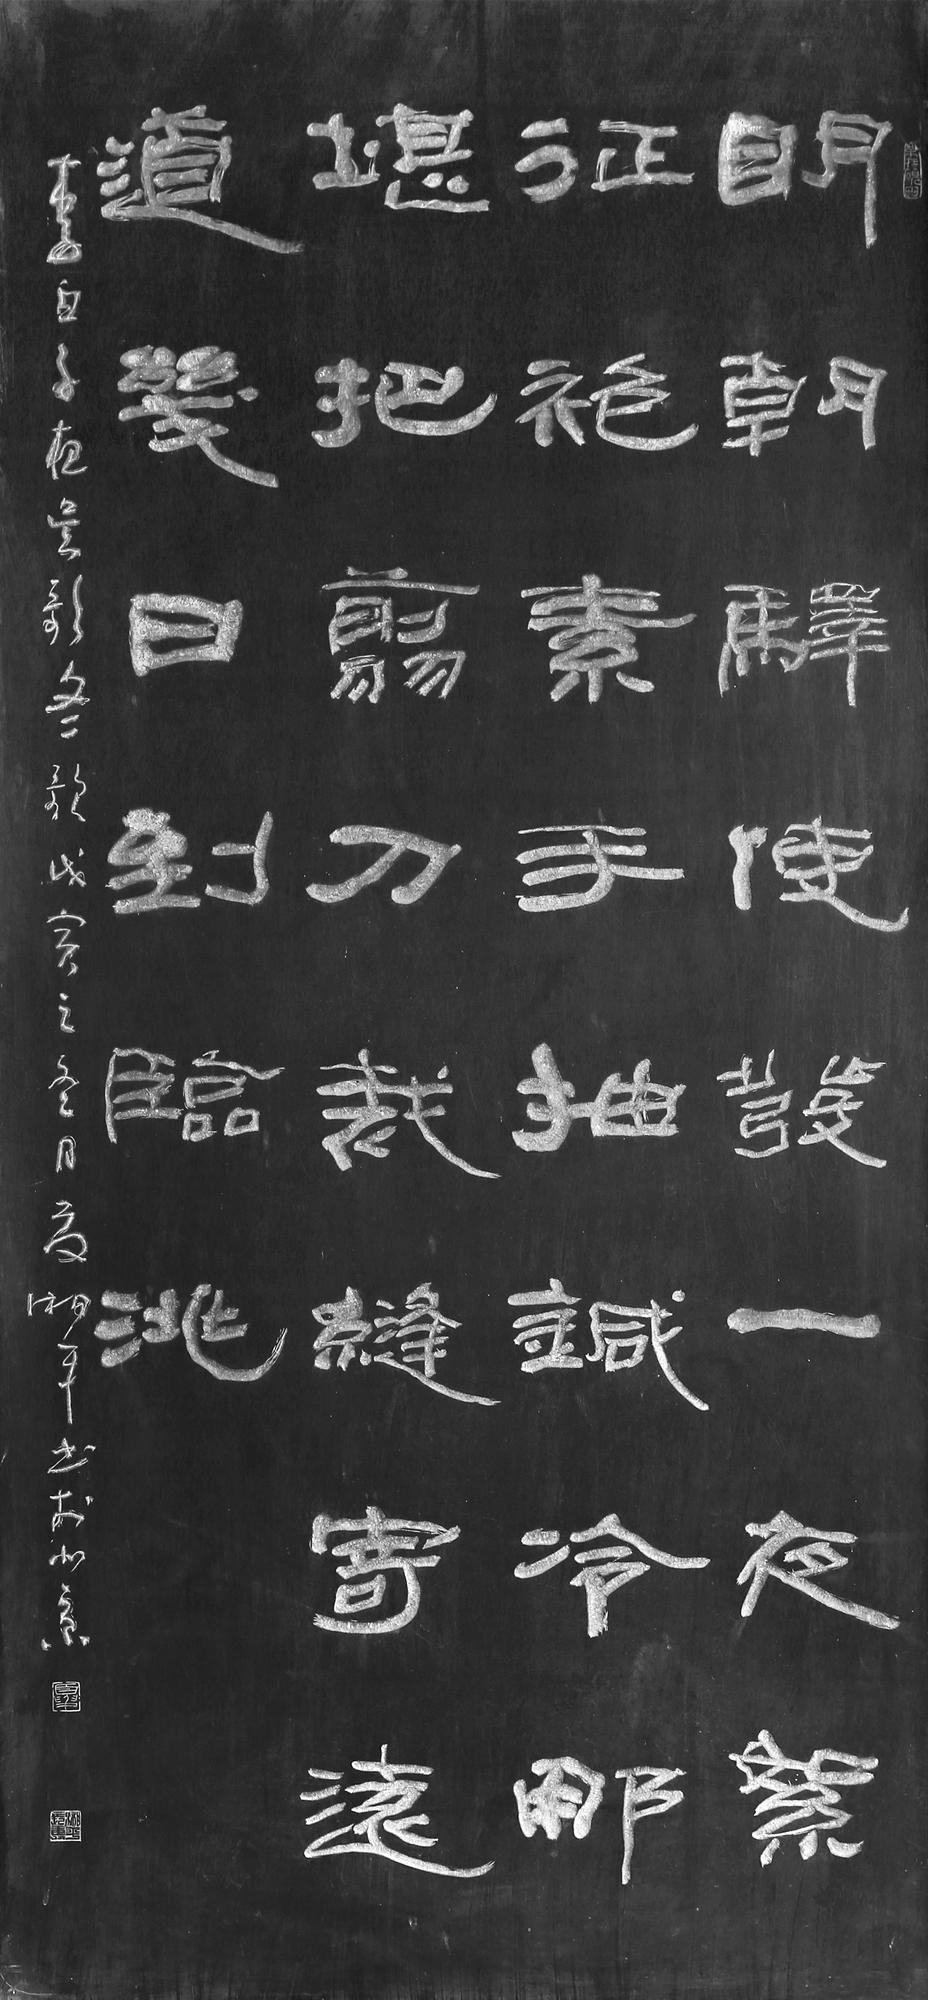 明朝驛使發一夜絮
征袍素手抽鍼冷那
堪把翦刀裁縫寄遠
道幾日到臨洮
李白子夜吳歌冬歌戊寅之冬月湘平书於